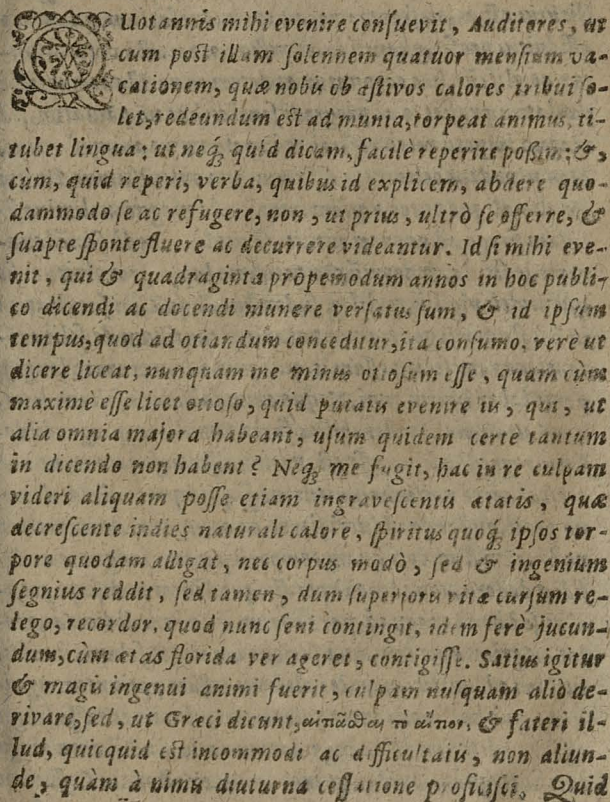 QUotannis mihi evenire consuevit, Auditores, ut
cum post illam solennem quatuor mensium va-
cationem, quæ nobis ob æstivos calores tribui so-
let, redeundum est ad munia, torpeat animus, ti-
tubet lingua; ut neq; quid dicam, facilè reperire possim; &,
cùm, quid reperi, verba, quibus id explicem, abdere quo-
dammodo se ac refugere, non, ut prius, ultrò se offerre, &
suapte sponte fluere ac decurrere videantur. Id si mihi eve-
nit, qui & quadraginta propemodum annos in hoc publi-
co dicendi ac docendi munere versatus sum, & id ipsum
tempus, quod ad otiandum conceditur, ita consumo, verè ut
dicere liceat, nunquam me minus otiosum esse, quam cùm
maximè esse licet otioso, quid putatis evenire iis, qui, ut
alia omnia majora habeant, usum quidem certe tantum
in dicendo non habent? Neq; me fugit, hac in re culpam
videri aliquam posse etiam ingravescentis ætatis, quæ
decrescente indies naturali calore, spiritus quoq; ipsos tor-
pore quodam alligat, nec corpus modò, sed & ingenium
segnius reddit, sed tamen, dum superioris vitæ cursum re-
lego, recordor, quod nunc seni contingit, idem ferè jucun-
dum, cùm ætas florida ver ageret, contigisse. Satius igitur
& magis ingenui animi fuerit, culpam nusquam aliò de-
rivare, sed, ut Græci dicunt, αἰτιᾶσθαι τὸ αἴτιον, & fateri il-
lud, quicquid est incommodi ac difficultatis, non aliun-
de, quàm à nimis diuturna cessatione proficisci. Quid